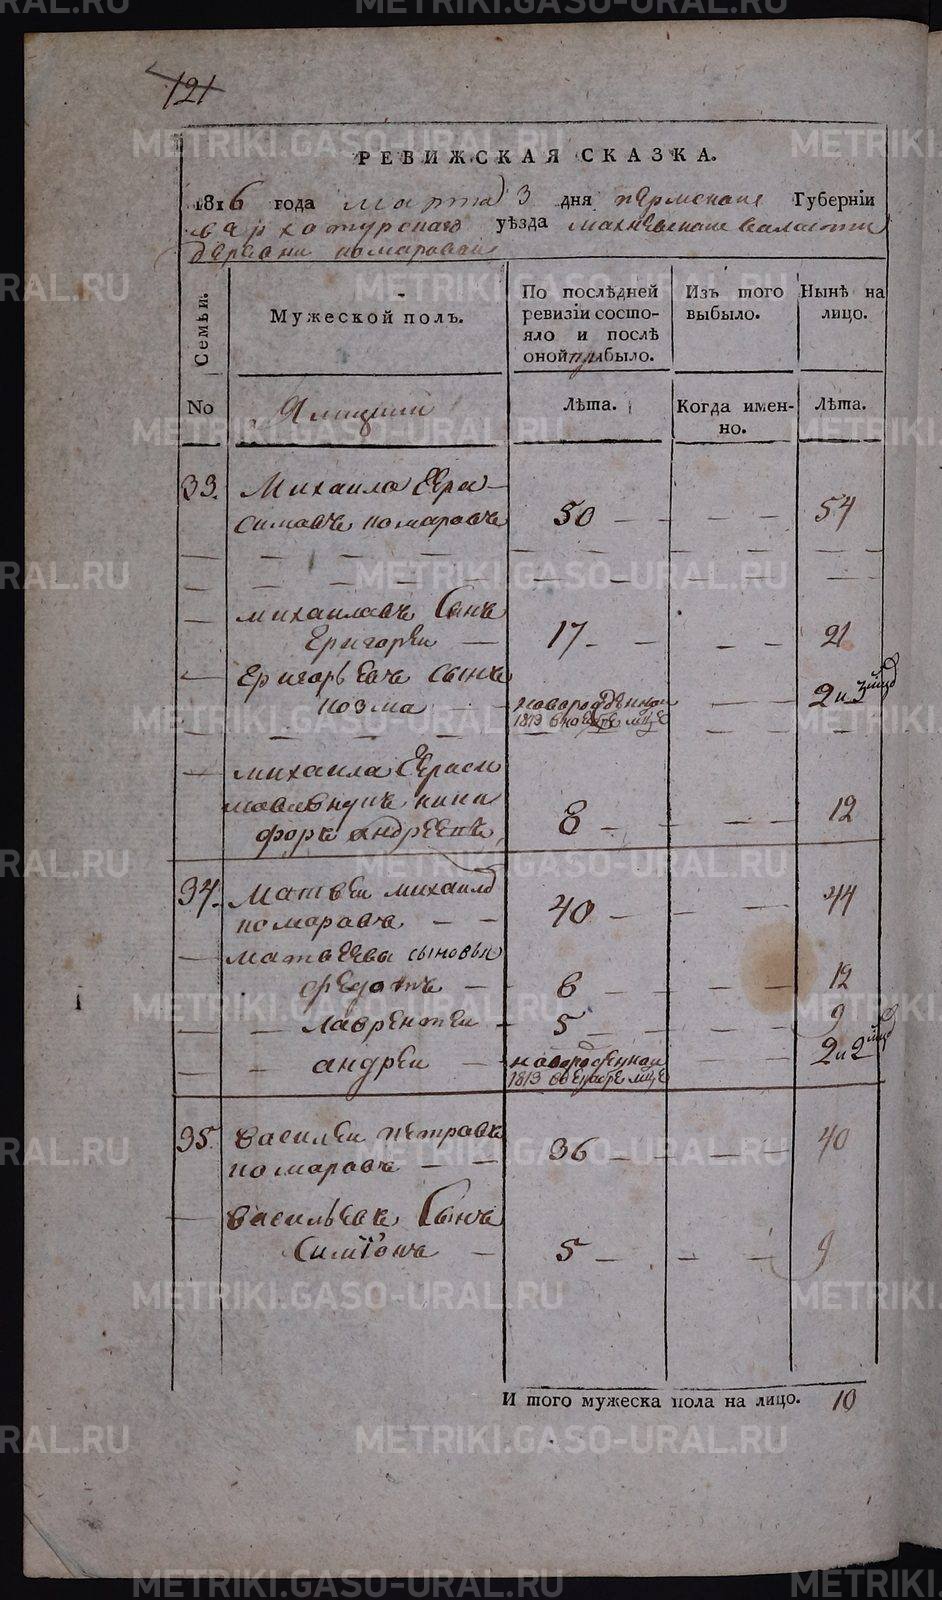 121
РЕВИЖСКАЯ СКАЗКА.
1816 года марта 3 дня пермские Губерніи
верхотурскаго уѣзда махневские валасти
деревни комаровои
Семьи.
Мужеской полъ.
По послѣдней ревизіи состо-яло и послѣ оной прибыло.
Изъ того выбыло.
Нынѣ на лицо.
No
Ямщики
Лѣта.
Когда имен-но.
Лѣта.
33. Михаила Гера-
симовъ комаровъ 50 — — — — 54
михаиловъ Сынъ
Григореи — 17 — — — — 21
Григорьевъ сынъ
козма — новорожденнои — — 2 и 3 мцд
1813 в ноябре мце
михаила Гераси
мова внукъ ники
форъ андреевъ 8 — — — 12
34. Матвеи михаило
комаровъ — — 40 — — — 44
матвеевы сыновья
федотъ — 6 — — — 12
— — лаврентеи — 5 — — — 9
— — андреи — новорожденнои — — 2 и 2 мцд
1813 в генваре мце
35. василеи петровъ
комаровъ — — 36 — — — 40
васильевъ Сынъ
Симионъ — 5 — — — 9
И того мужеска пола на лицо. 10
METRIKI.GASO-URAL.RU